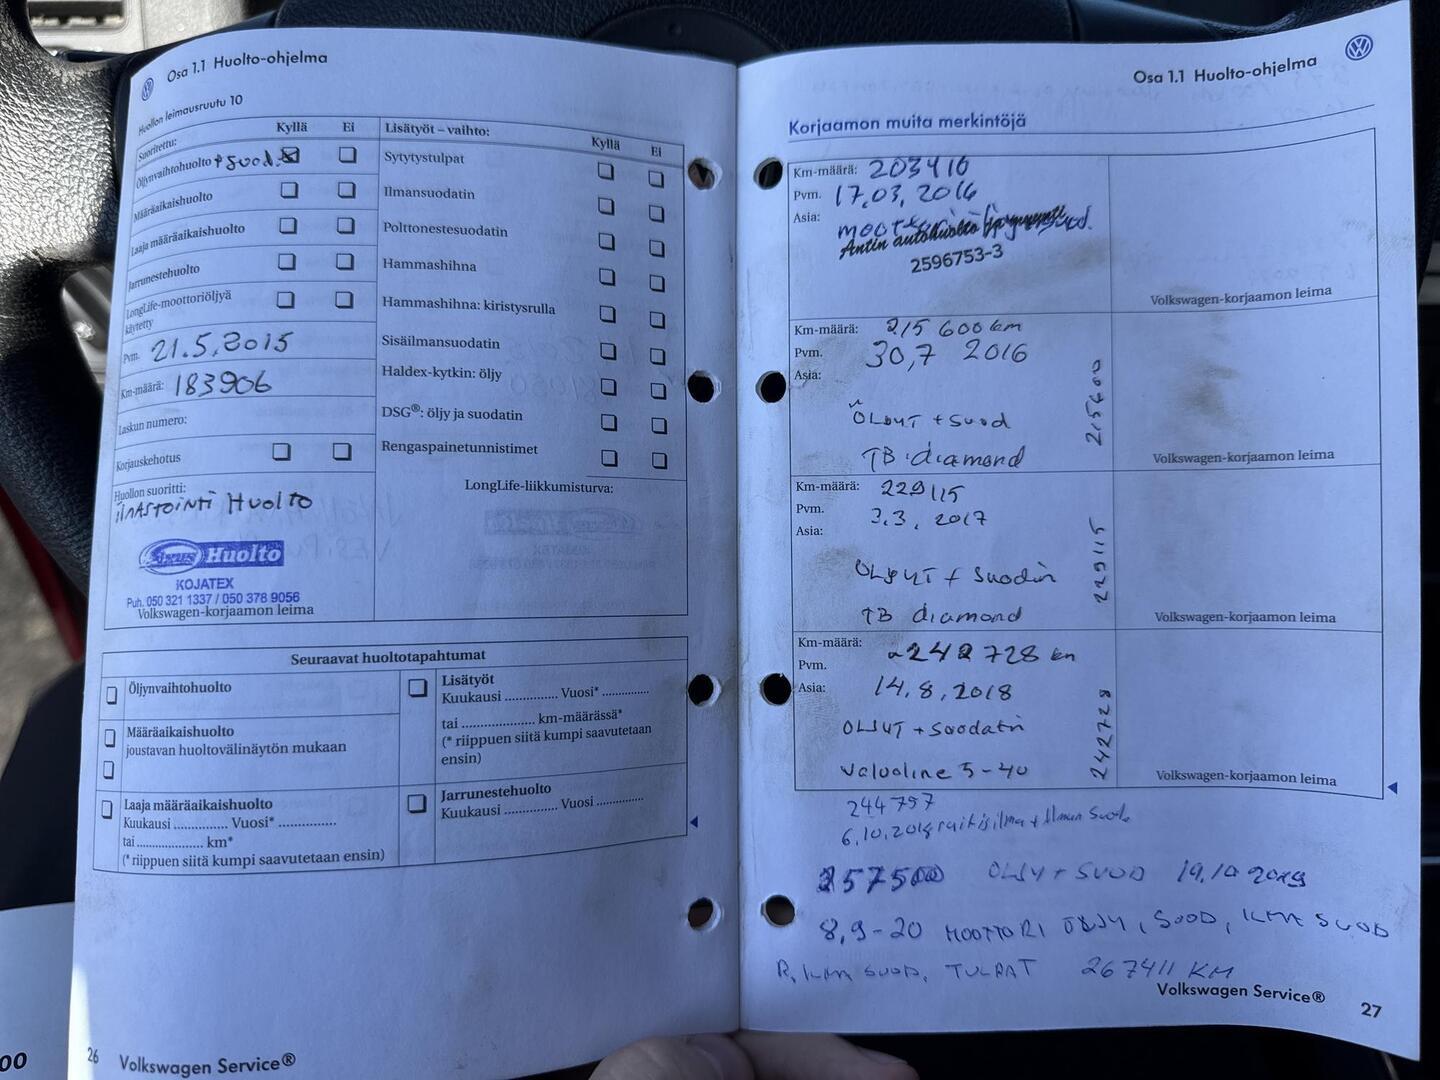 Osa 1.1 Huolto-ohjelma
Huollon leimausruutu 10
Suoritettu:
Kyllä Ei
Öljynvaihtohuolto + Suod.
Määräaikaishuolto
Laaja määräaikaishuolto
Jarrunestehuolto
LongLife-moottoriöljyä
käytetty
Pvm. 21.5.2015
Km-määrä: 183906
Laskun numero:
Korjauskehotus
Huollon suoritti:
ilmastointi Huolto
Huolto
KOJATEX
Puh. 050 321 1337 / 050 378 9056
Volkswagen-korjaamon leima
Lisätyöt – vaihto:
Kyllä Ei
Sytytystulpat
Ilmansuodatin
Polttonestesuodatin
Hammashihna
Hammashihna: kiristysrulla
Sisäilmansuodatin
Haldex-kytkin: öljy
DSG®: öljy ja suodatin
Rengaspainetunnistimet
LongLife-liikkumisturva:
Seuraavat huoltotapahtumat
Öljynvaihtohuolto
Määräaikaishuolto
joustavan huoltovälinäytön mukaan
Laaja määräaikaishuolto
Kuukausi .............. Vuosi* ..............
tai ..................... km*
(* riippuen siitä kumpi saavutetaan ensin)
Lisätyöt
Kuukausi .............. Vuosi* ..............
tai ..................... km-määrässä*
(* riippuen siitä kumpi saavutetaan
ensin)
Jarrunestehuolto
Kuukausi .............. Vuosi ..............
26 Volkswagen Service®
00
Osa 1.1 Huolto-ohjelma
Korjaamon muita merkintöjä
Km-määrä: 203416
Pvm. 17.03.2016
Asia:
Antin autohuolto
2596753-3
Volkswagen-korjaamon leima
Km-määrä: 215 600 km
Pvm. 30,7 2016
Asia:
ÖLJYT + Suod
TB diamond
215600
Volkswagen-korjaamon leima
Km-määrä: 229115
Pvm. 3.3, 2017
Asia:
ÖLJYT + Suodin
TB diamond
229115
Volkswagen-korjaamon leima
Km-määrä: 242 728 km
Pvm.
Asia: 14,8,2018
ÖLJYT + Suodatin
Valvoline 5-40
242728
Volkswagen-korjaamon leima
244797
6.10.2018 raitisilma + Ilman Suod
257500 ÖLJY + SUOD 19.10 2019
8,9-20 MOOTTORI ÖLJY, SUOD, ILM SUOD
R.ILM SUOD, TULPAT 267411 KM
Volkswagen Service®
27